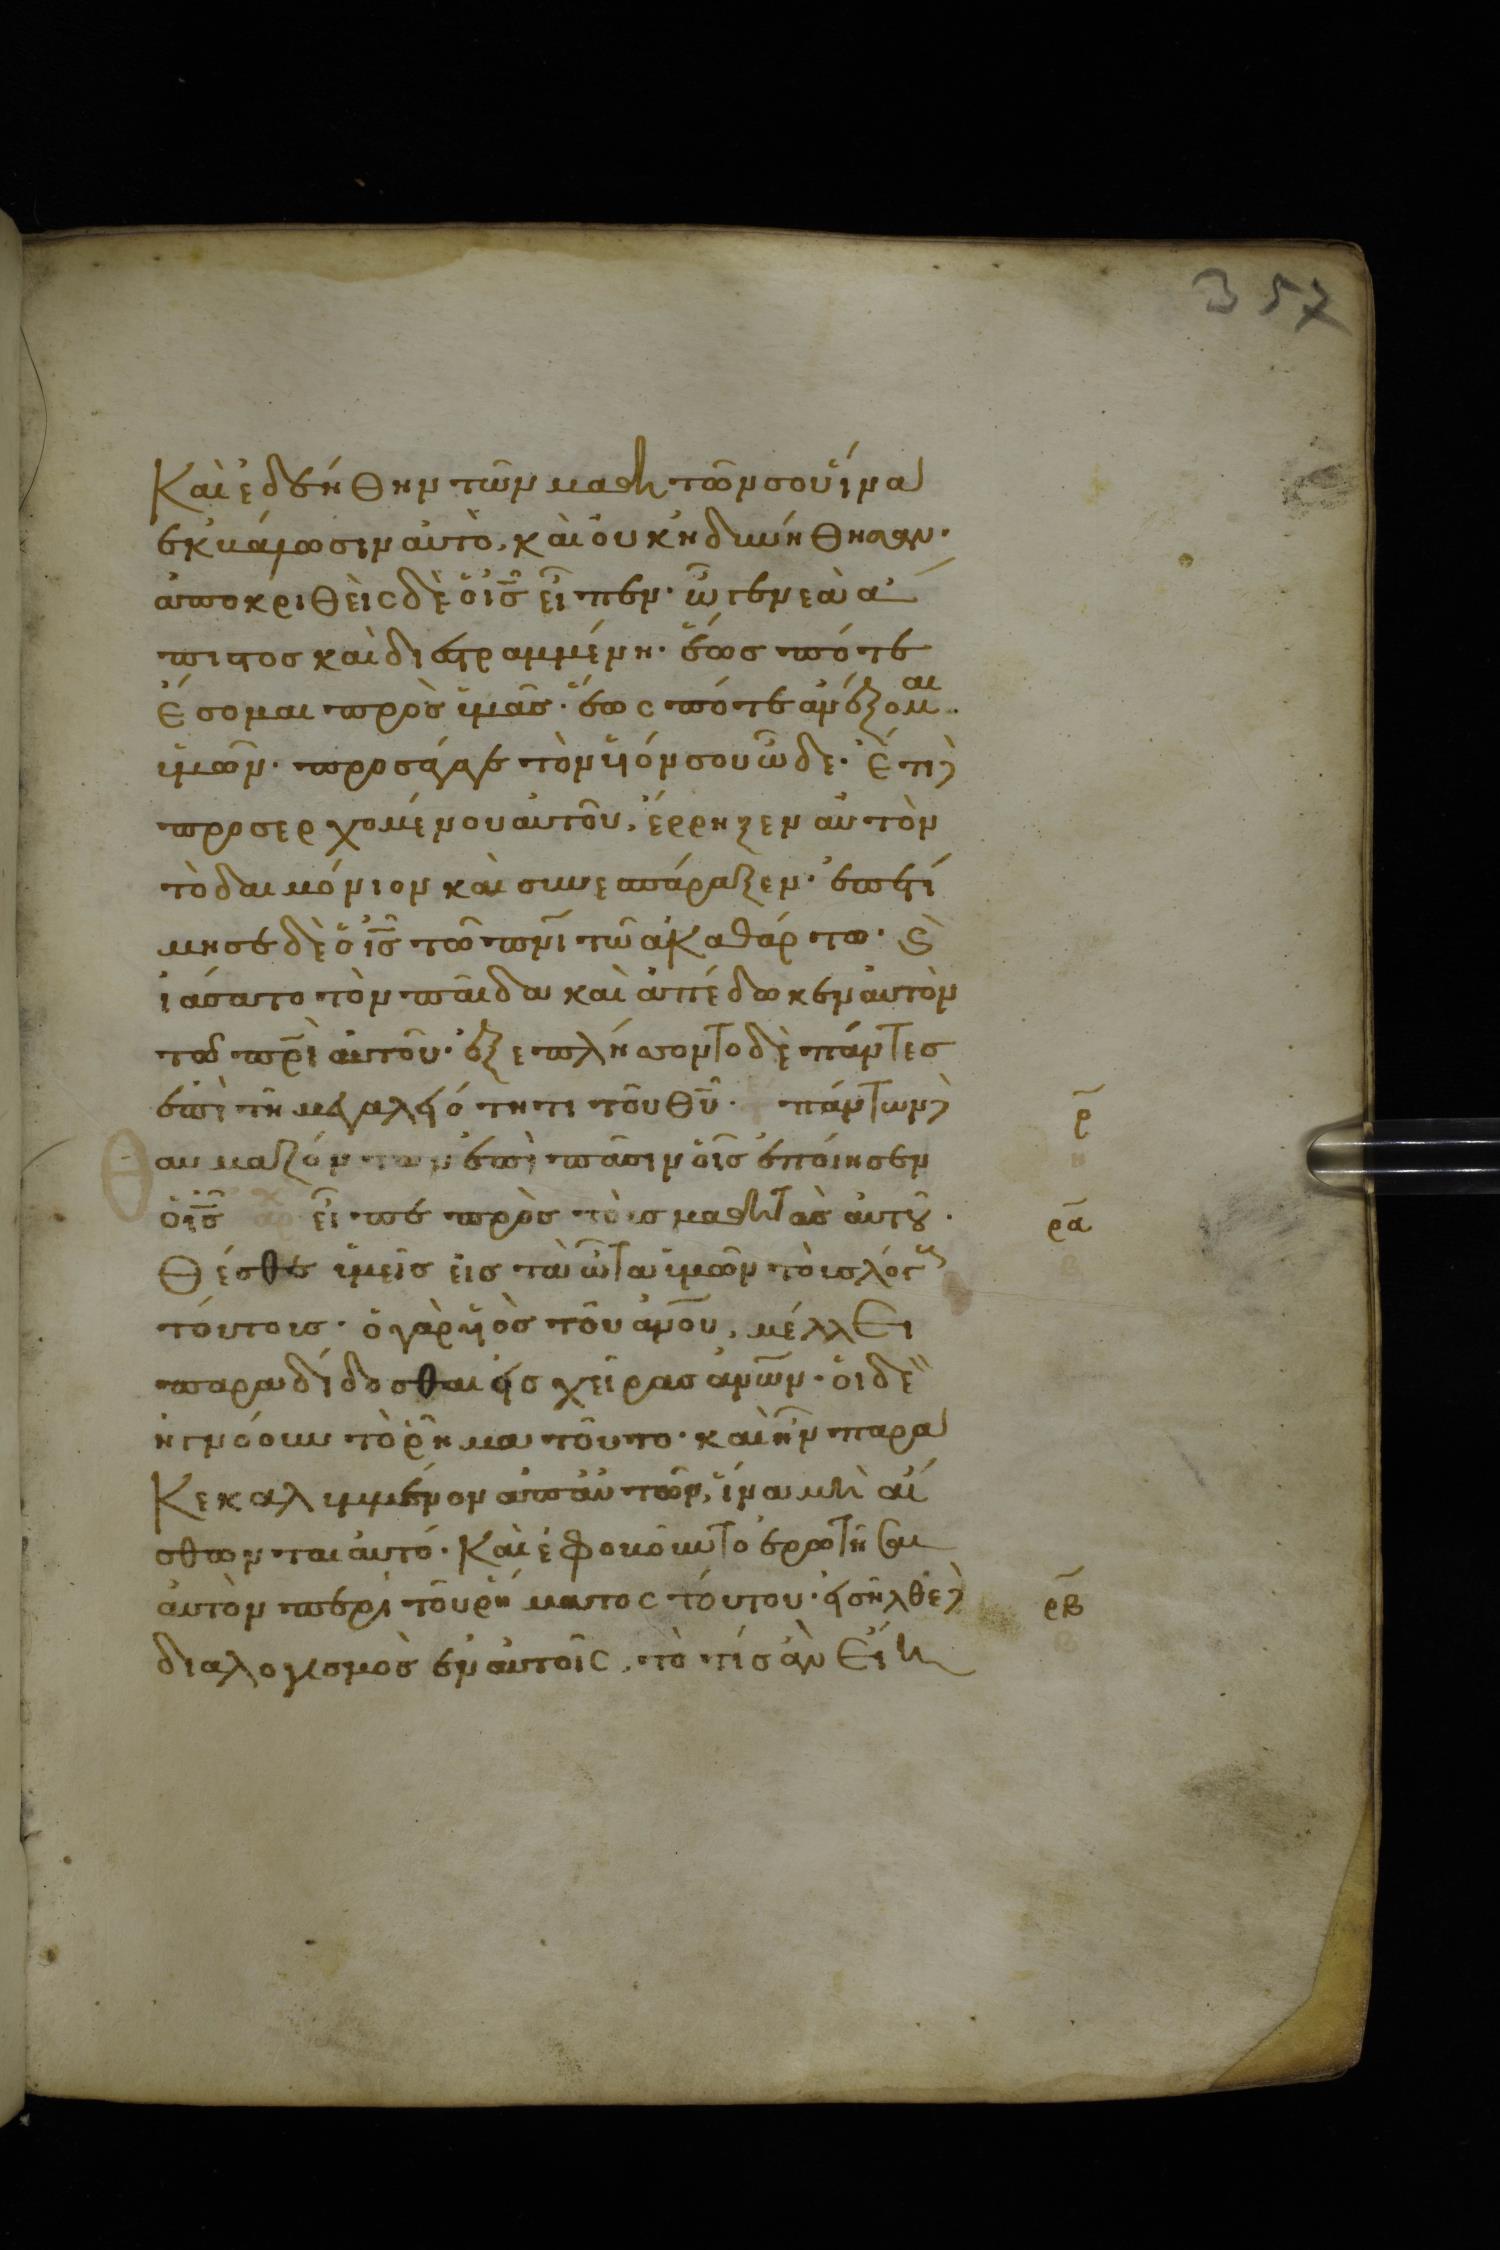 357
Καὶ ἐδεήθην τῶν μαθητῶν σου ἵνα
ἐκβάλωσιν αὐτὸ, καὶ οὐκ ἠδυνήθησαν·
ἀποκριθεὶς δὲ ὁ ις̅ εἶπεν· ὦ γενεὰ ἄ
πιστος καὶ διεστραμμένη· ἕως πότε
ἔσομαι πρὸς ὑμᾶς· ἕως πότε ἀνέξομαι
ὑμῶν· προσάγαγε τὸν υἱόν σου ὧδε· ἔτι δὲ
προσερχομένου αὐτοῦ, ἔρρηξεν αὐτὸν
τὸ δαιμόνιον καὶ συνεσπάραξεν· ἐπετί
μησε δὲ ὁ ις̅ τῶ πνι̅ τῶ ἀκαθάρτω· καὶ
ἰάσατο τὸν παῖδα καὶ ἀπέδωκεν αὐτὸν
τῶ πρι̅ αὐτοῦ· ἐξεπλήσσοντο δὲ πάντες
ἐπὶ τῆ μεγαλειότητι τοῦ θυ̅· πάντων δὲ
ρ̅
θαυμαζόντων ἐπὶ πᾶσιν οἷς ἐποίησεν
ὁ ις̅ εἶπε πρὸς τοὺς μαθητὰς αὐτοῦ·
ρα̅
Θέσθε ὑμεῖς εἰς τὰ ὦτα ὑμῶν τοὺς λόγους
τούτους· ὁ γὰρ υἱὸς τοῦ ανου̅, μέλλει
παραδίδοσθαι εἰς χεῖρας ανων̅· οἱ δὲ
ἠγνόουν τὸ ῥῆμα τοῦτο· καὶ ἦν παρα
Κεκαλυμμένον ἀπ' αὐτῶν, ἵνα μὴ αἴ
σθωνται αὐτό· Καὶ ἐφοβοῦντο ἐρωτῆσαι
αὐτὸν περὶ τοῦ ῥήματος τούτου· εἰσῆλθε δὲ
ρβ̅
διαλογισμὸς ἐν αὐτοῖς, τὸ τίς ἂν εἴη